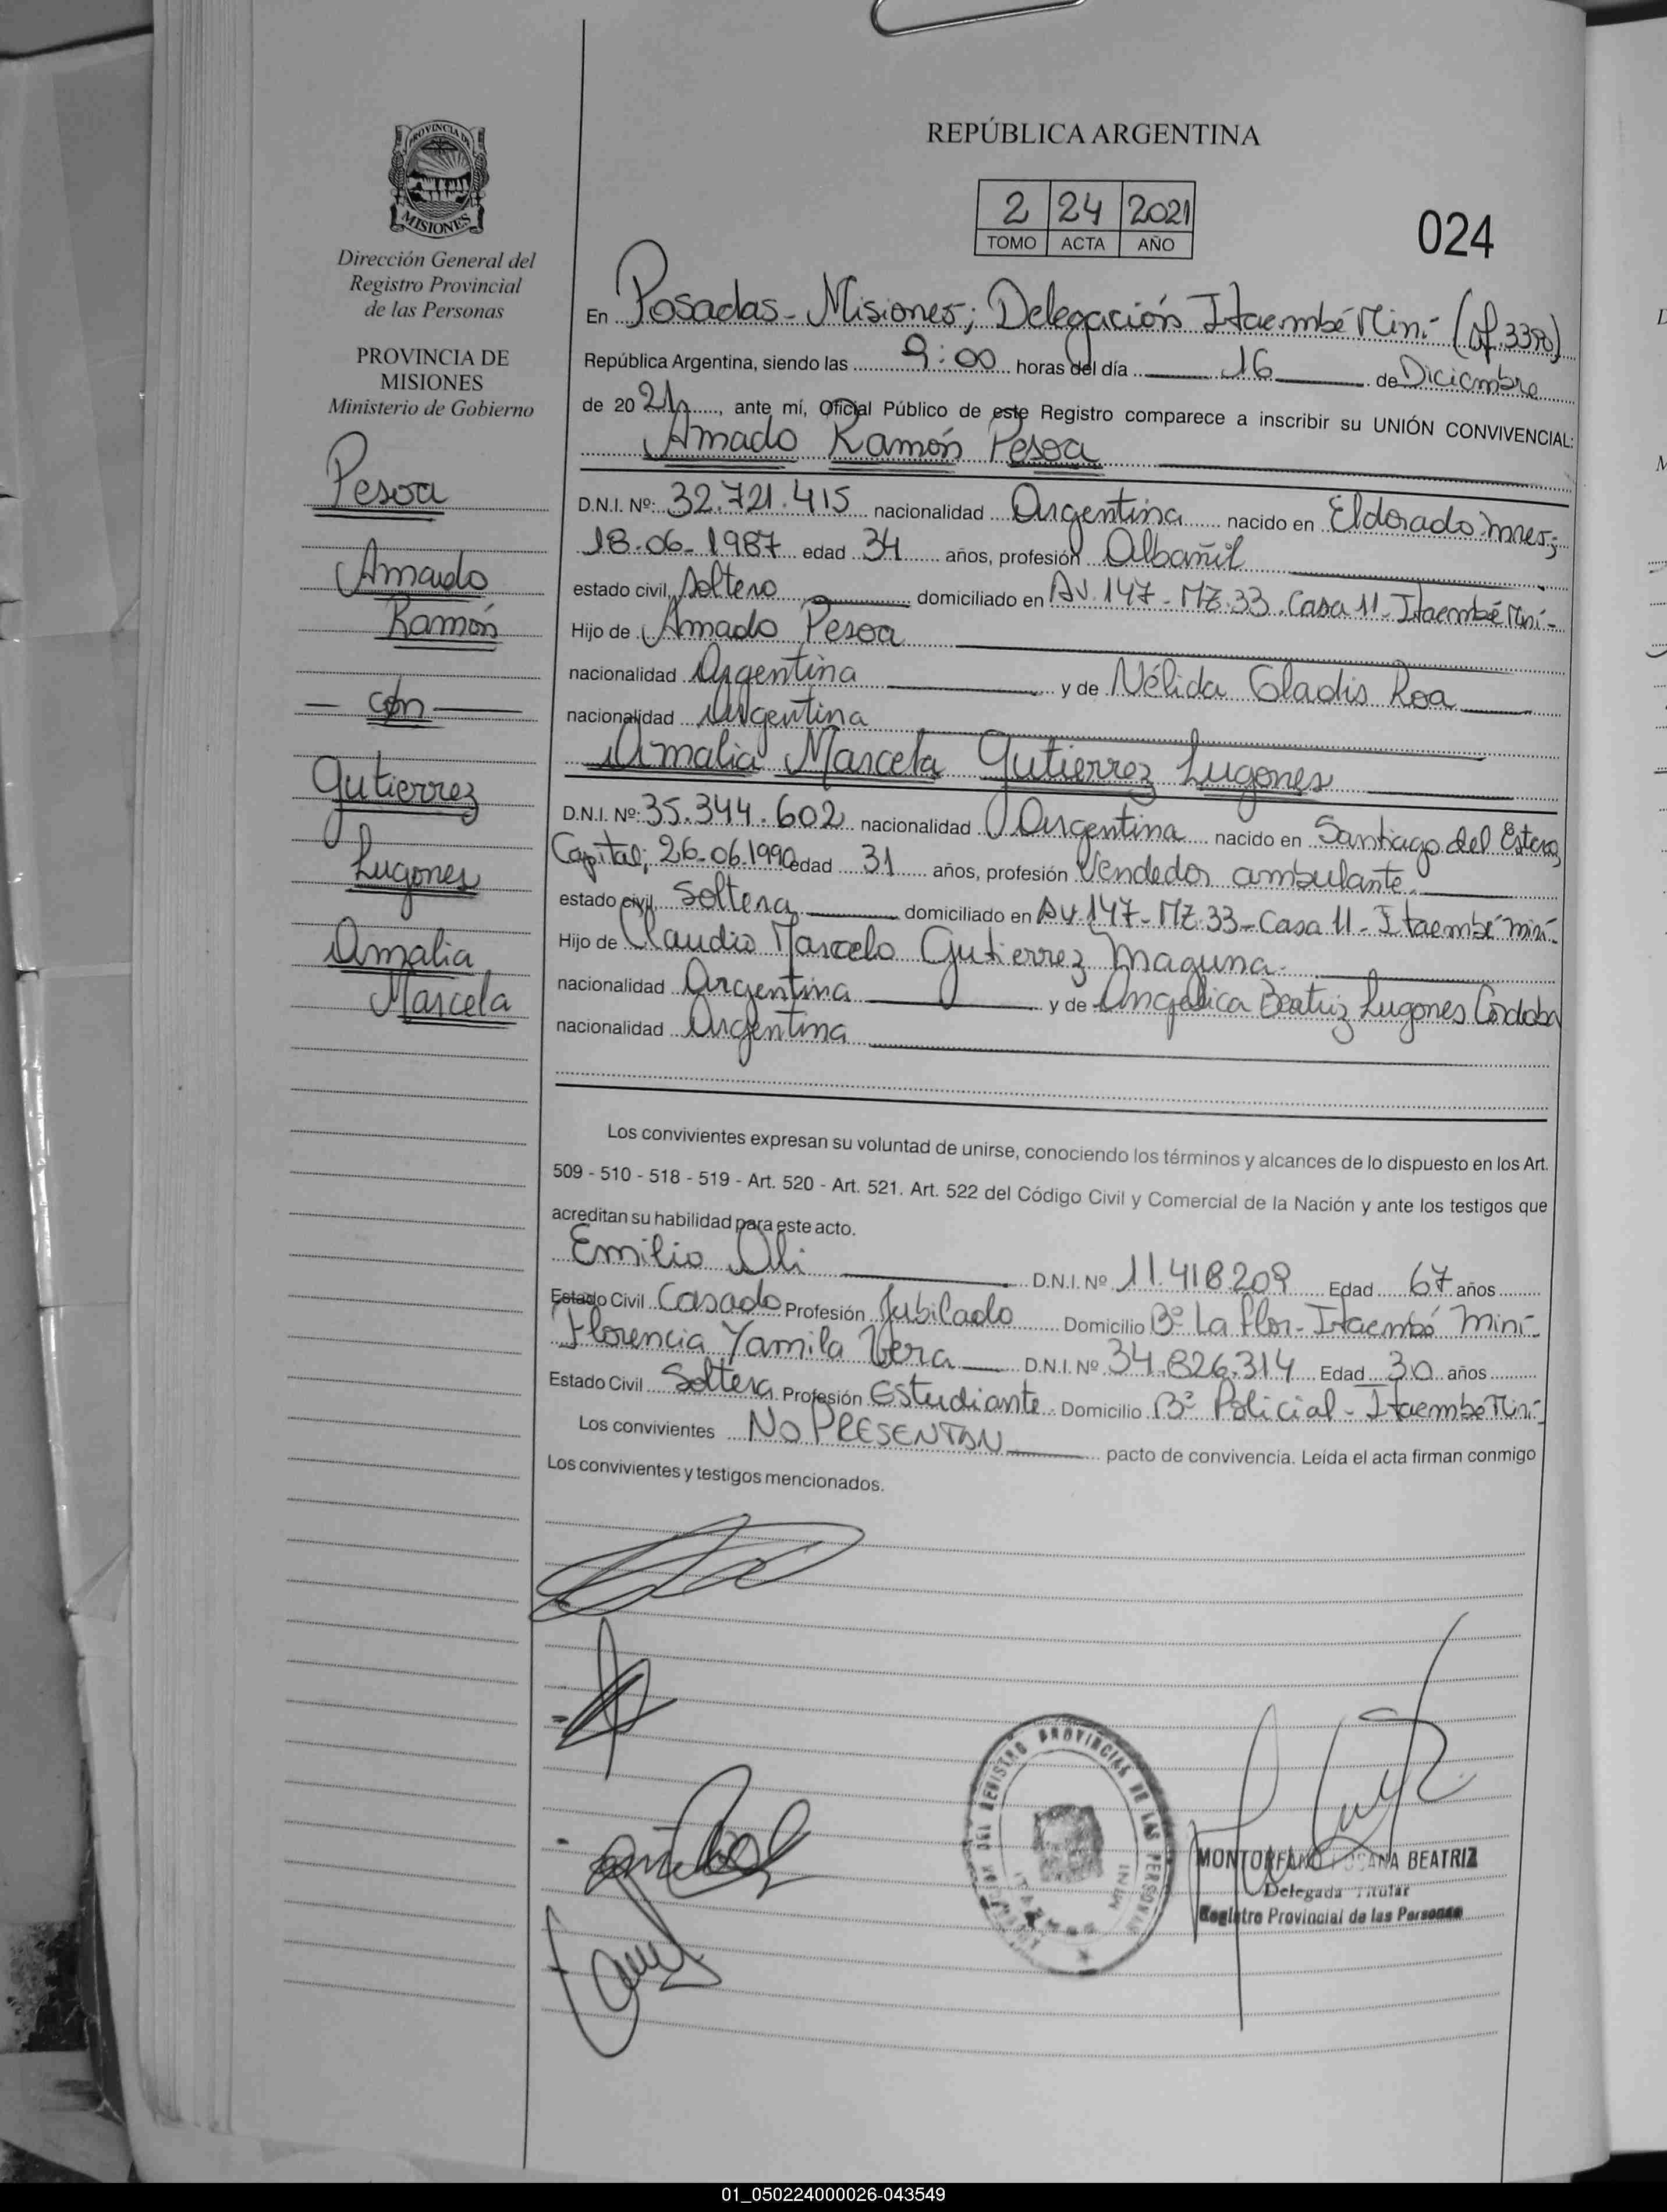 PROVINCIA DE
MISIONES
Dirección General del
Registro Provincial
de las Personas
PROVINCIA DE
MISIONES
Ministerio de Gobierno
Pesoa
Amado
Ramón
— con —
Gutierrez
Lugones
Amalia
Marcela
REPÚBLICA ARGENTINA
2 24 2021
TOMO ACTA AÑO
024
En Posadas - Misiones; Delegación Itaembé Miní - (of. 3390)
República Argentina, siendo las 9:00 horas del día 16 de Diciembre
de 2021, ante mí, Oficial Público de este Registro comparece a inscribir su UNIÓN CONVIVENCIAL:
Amado Ramón Pesoa
D.N.I. Nº: 32.721.415 nacionalidad Argentina nacido en Eldorado Mnes;
18-06-1987 edad 34 años, profesión Albañil
estado civil, Soltero domiciliado en Av. 147 - MZ. 33. Casa 11 - Itaembé Miní -
Hijo de Amado Pesoa
nacionalidad Argentina y de Nélida Gladis Roa
nacionalidad Argentina
Amalia Marcela Gutierrez Lugones
D.N.I. Nº: 35.344.602 nacionalidad Argentina nacido en Santiago del Estero,
Capital; 26-06-1990 edad 31 años, profesión Vendedor ambulante.
estado civil, Soltera domiciliado en Av. 147 - MZ. 33 - Casa 11 - Itaembé miní -
Hijo de Claudio Marcelo Gutierrez Maguna.
nacionalidad Argentina y de Angélica Beatriz Lugones Córdoba
nacionalidad Argentina
Los convivientes expresan su voluntad de unirse, conociendo los términos y alcances de lo dispuesto en los Art.
509 - 510 - 518 - 519 - Art. 520 - Art. 521. Art. 522 del Código Civil y Comercial de la Nación y ante los testigos que
acreditan su habilidad para este acto.
Emilio Oli D.N.I. Nº 11.418.209 Edad 67 años
Estado Civil Casado Profesión Jubilado Domicilio Bº La Flor - Itaembé Miní -
Florencia Yamila Vera D.N.I. Nº 34.826.314 Edad 30 años
Estado Civil Soltera Profesión Estudiante - Domicilio Bº Policial - Itaembé Miní -
Los convivientes NO PRESENTAN pacto de convivencia. Leída el acta firman conmigo
Los convivientes y testigos mencionados.
DEL REGISTRO PROVINCIAL DE LAS PERSONAS
ITAEMBE MINI
MONTORFANO ROSANA BEATRIZ
Delegada Titular
Registro Provincial de las Personas
01_050224000026-043549